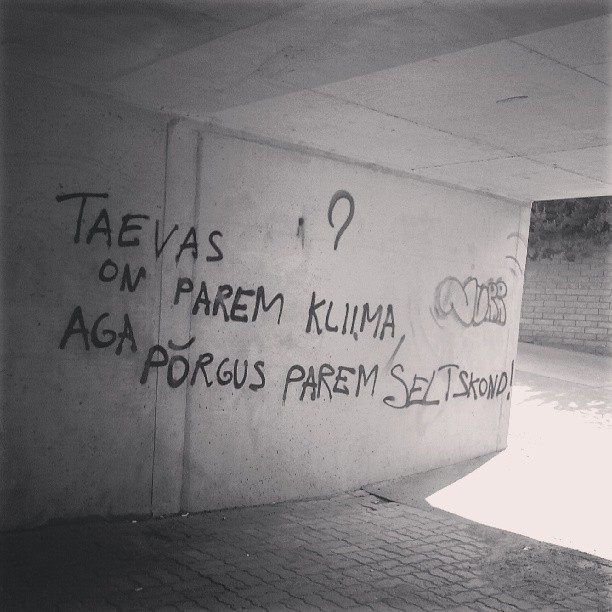 ?
TAEVAS
ON PAREM KLIIMA,
AGA PÕRGUS PAREM SELTSKOND!